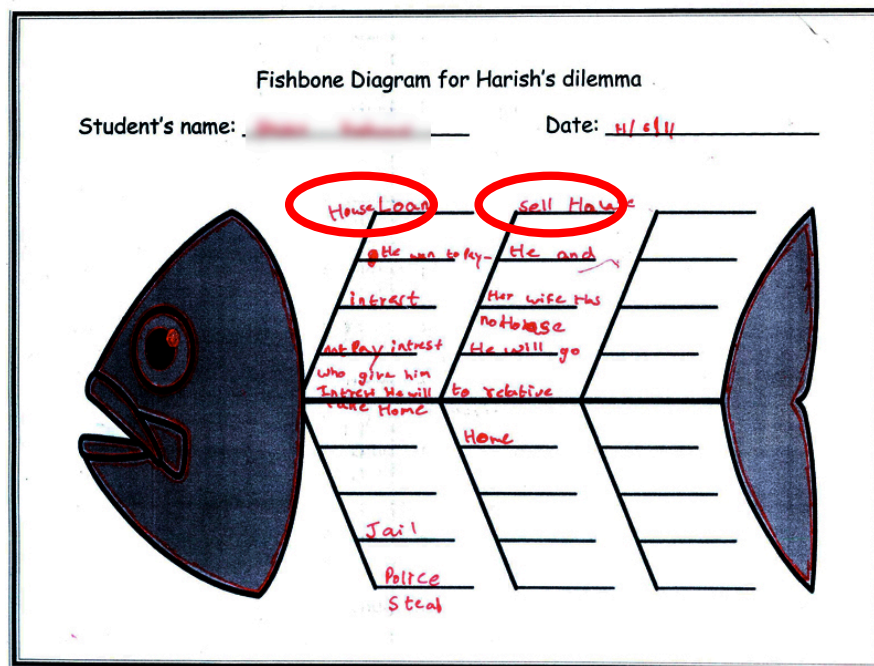 Fishbone Diagram for Harish's dilemma
Student's name:
Date: 11/6/11
House Loan
He wan to Pay-
intrest
not Pay intrest
who give him
Intrest He will
take Home
sell House
He and
Her wife Has
no House
He will go
to relative
Home
Jail
Police
Steal